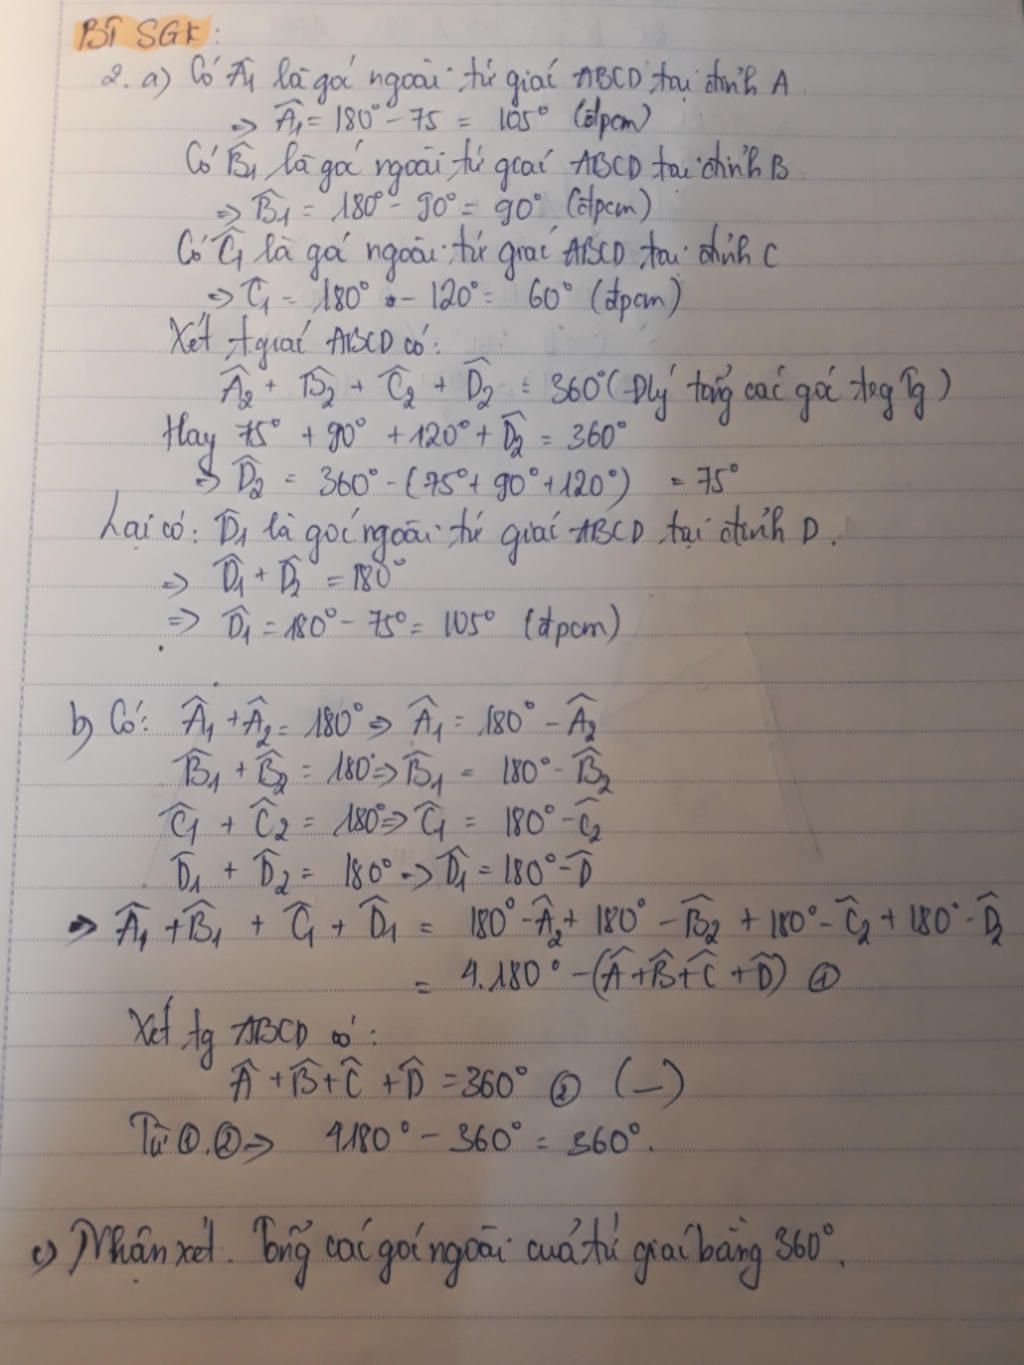 BT SGK:
2. a) Có Â1 là góc ngoài tứ giác ABCD tại đỉnh A
=> Â1 = 180° - 75 = 105° (đpcm)
Có B̂1 là góc ngoài tứ giác ABCD tại đỉnh B
=> B̂1 = 180° - 90° = 90° (đpcm)
Có Ĉ1 là góc ngoài tứ giác ABCD tại đỉnh C
=> Ĉ1 = 180° - 120° = 60° (đpcm)
Xét tgiác ABCD có:
Â2 + B̂2 + Ĉ2 + D̂2 = 360° (Đlý tổng các góc trg Tg)
Hay 75° + 90° + 120° + D̂2 = 360°
=> D̂2 = 360° - (75° + 90° + 120°) = 75°
Lại có: D̂1 là góc ngoài tứ giác ABCD tại đỉnh D.
=> D̂1 + D̂2 = 180°
=> D̂1 = 180° - 75° = 105° (đpcm)
b) Có: Â1 + Â2 = 180° => Â1 = 180° - Â2
B̂1 + B̂2 = 180° => B̂1 = 180° - B̂2
Ĉ1 + Ĉ2 = 180° => Ĉ1 = 180° - Ĉ2
D̂1 + D̂2 = 180° => D̂1 = 180° - D̂
=> Â1 + B̂1 + Ĉ1 + D̂1 = 180° - Â2 + 180° - B̂2 + 180° - Ĉ2 + 180° - D̂2
= 4.180° - (Â + B̂ + Ĉ + D̂) ①
Xét tg ABCD có:
Â + B̂ + Ĉ + D̂ = 360° ② (—)
Từ ①, ② => 4.180° - 360° = 360°.
c) Nhận xét. Tổng các góc ngoài của tứ giác bằng 360°.